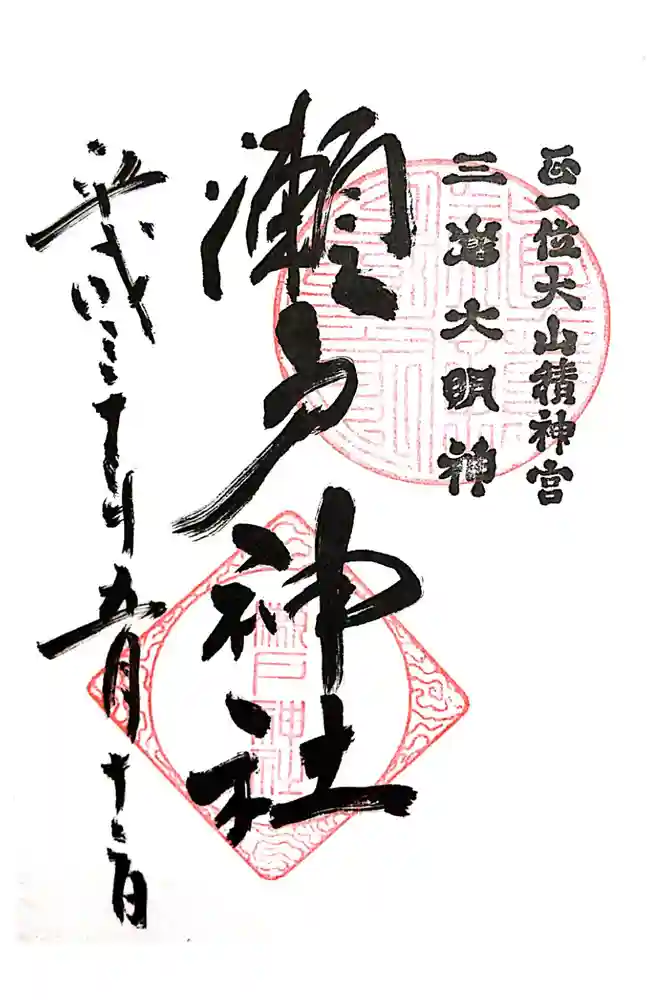 正一位大山積神宮
三嶌大明神
瀬戸神社
瀬戸神社
平成三十年五月十二日